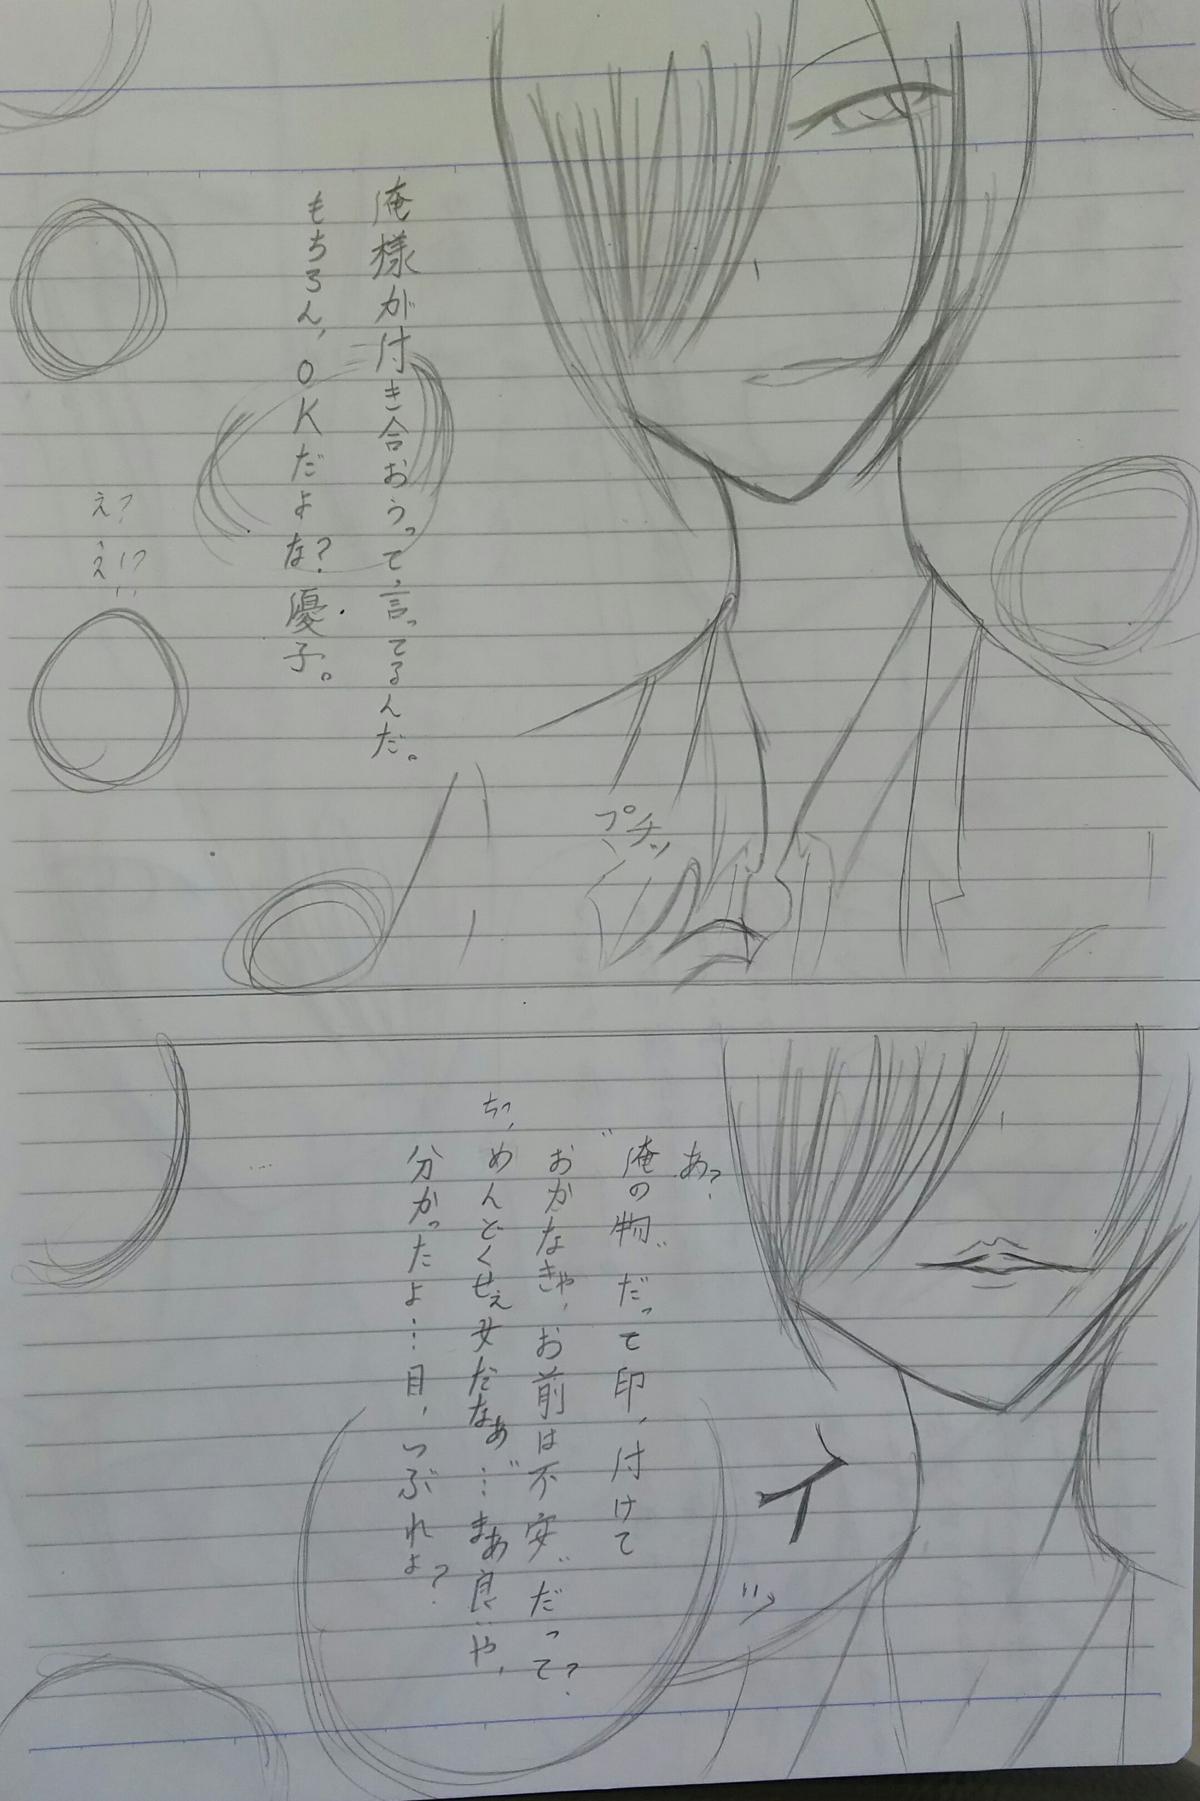 俺様が付き合おうって、言ってるんだ。
もちろん、OKだよな?優子。
え?
え!?
プチッ
あ?
"俺の物"だって印、付けて
おかなきゃ、お前は不安"だって?
ちっ、めんどくせぇ女だなぁ"…まあ良いや、
分かったよ…目、つぶれよ?